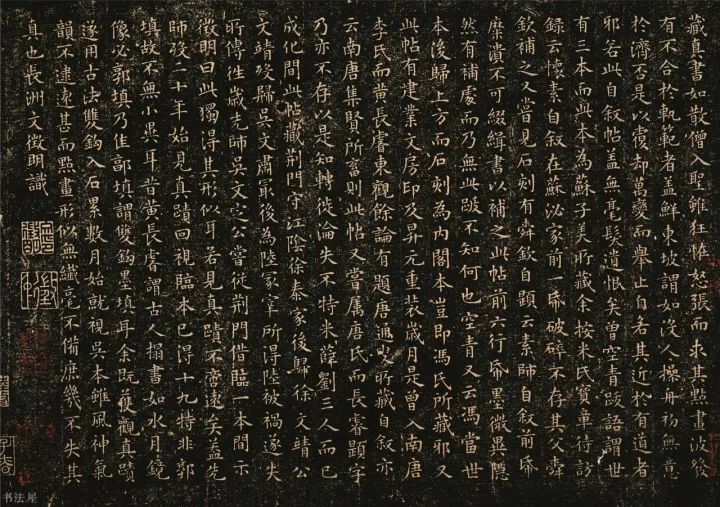 藏真書如散僧入聖雖狂怪怒張而求其點畫波發
有不合於軌範者蓋鮮東坡謂如沒人操舟初無意
於濟否是以覆却萬變而舉止自若其近於有道者
邪若此自敘帖蓋無毫髮遺恨矣曾空青跋語謂世
有三本而此本為蘇子美所藏余按米氏寶章待訪
錄云懷素自敘在蘇泌家前一帋破碎不存其父舜
欽補之又嘗見石刻有舜欽自題云素師自敘前帋
糜潰不可綴緝書以補之此帖前六行帋墨微異隱
然有補處而乃無此跋不知何也空青又云馮當世
本後歸上方而石刻為內閣本豈即馮氏所藏邪又
此帖有建業文房印及昇元重裝歲月是曾入南唐
李氏而黃長睿東觀餘論有題唐通叟所藏自敘亦
云南唐集賢所畜則此帖又嘗屬唐氏而長睿題字
乃亦不存以是知轉徙淪失不特米薛劉三人而已
成化間此帖藏荆門守江陰徐泰家後歸徐文靖公
文靖歿歸吳文肅最後為陸冢宰所得陸被禍遂失
所傳往歲先師吳文定公嘗從荆門借臨一本間示
徵明曰此獨得其形似耳若見真蹟不啻遠矣蓋先
師歿二十年始見真蹟回視臨本已得十九特非郭
填故不無小異耳昔黃長睿謂古人搨書如水月鏡
像必郭填乃佳郭填謂雙鈎墨填耳余既獲觀真蹟
遂用古法雙鈎入石累數月始就視吳本雖風神氣
韻不逮遠甚而點畫形似無纖毫不備庶幾不失其
真也長洲文徵明識
书法屋